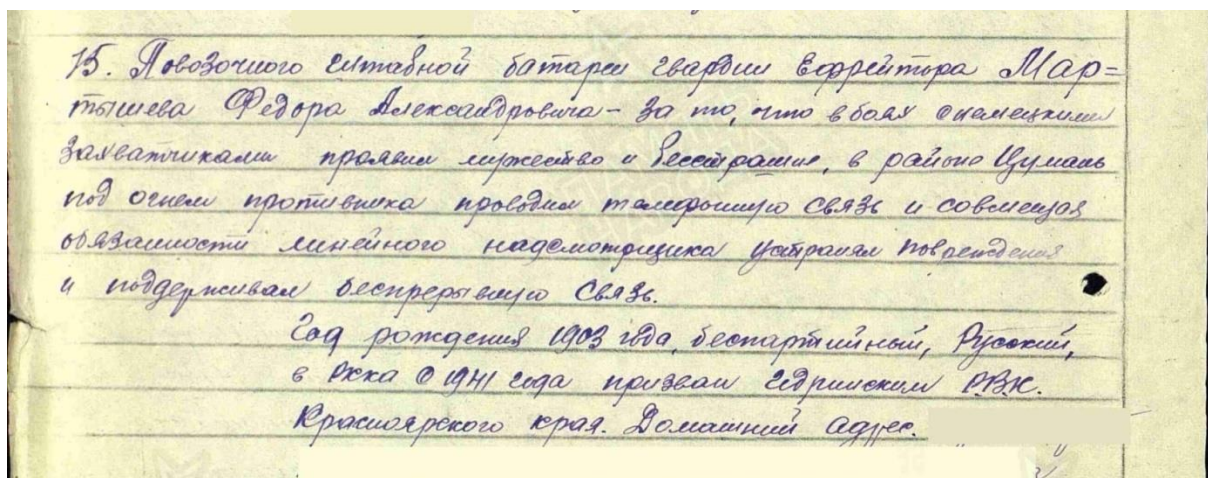 15. Повозочного штабной батареи гвардии Ефрейтора Мар=
тышева Федора Александровича - За то, что в боях с немецкими
захватчиками проявил мужество и бесстрашие, в районе Цумань
под огнем противника проводил телефонную связь и совмещая
обязанности линейного надсмотрщика устранял повреждения
и поддерживал беспрерывную связь.
Год рождения 1903 года, беспартийный, Русский,
в РККА с 1941 года призван Идринским РВК.
Красноярского края. Домашний адрес.